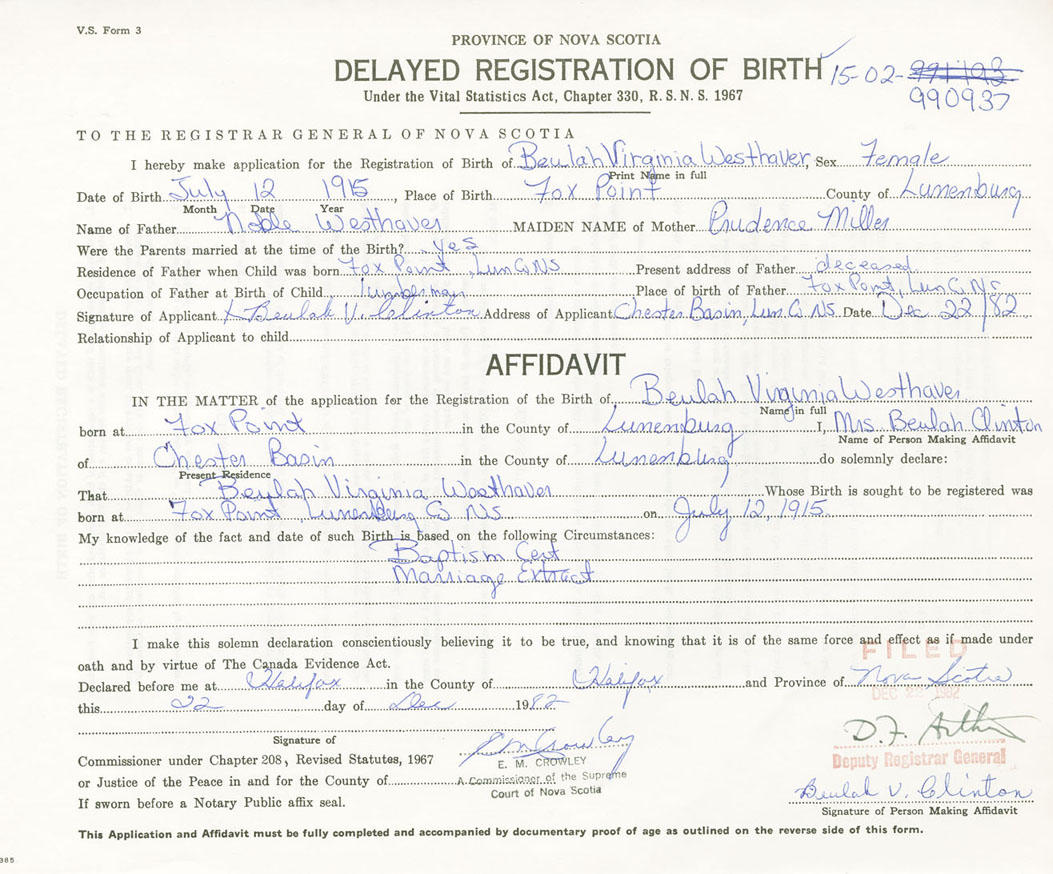 V.S. Form 3
PROVINCE OF NOVA SCOTIA
DELAYED REGISTRATION OF BIRTH 15-02-
Under the Vital Statistics Act, Chapter 330, R. S. N. S. 1967
990937
TO THE REGISTRAR GENERAL OF NOVA SCOTIA
I hereby make application for the Registration of Birth of Beulah Virginia Westhaver, Sex Female
Print Name in full
Date of Birth July 12 1915, Place of Birth Fox Point County of Lunenburg
Month Date Year
Name of Father Noble Westhaver MAIDEN NAME of Mother Prudence Miller
Were the Parents married at the time of the Birth? yes
Residence of Father when Child was born Fox Point, Lun Co NS Present address of Father deceased
Occupation of Father at Birth of Child lumberman Place of birth of Father Fox Point, Lun Co NS
Signature of Applicant X Beulah V. Clinton Address of Applicant Chester Basin, Lun. Co NS. Date Dec 22/82
Relationship of Applicant to child
AFFIDAVIT
IN THE MATTER of the application for the Registration of the Birth of, Beulah Virginia Westhaver
Name in full
born at Fox Point in the County of Lunenburg I, Mrs. Beulah Clinton
Name of Person Making Affidavit
of Chester Basin in the County of Lunenburg do solemnly declare:
Present Residence
That Beulah Virginia Westhaver Whose Birth is sought to be registered was
born at Fox Point, Lunenburg Co NS on July 12, 1915.
My knowledge of the fact and date of such Birth is based on the following Circumstances:
Baptism Cert
Marriage Extract
I make this solemn declaration conscientiously believing it to be true, and knowing that it is of the same force and effect as if made under
oath and by virtue of The Canada Evidence Act.
FILED
Declared before me at Halifax in the County of Halifax and Province of Nova Scotia
DEC 22 1982
this 22 day of Dec 1982
Signature of
Commissioner under Chapter 208, Revised Statutes, 1967
or Justice of the Peace in and for the County of
If sworn before a Notary Public affix seal.
E M Crowley
E. M. CROWLEY
A Commissioner of the Supreme
Court of Nova Scotia
D. F.
Deputy Registrar General
Beulah V. Clinton
Signature of Person Making Affidavit
This Application and Affidavit must be fully completed and accompanied by documentary proof of age as outlined on the reverse side of this form.
385